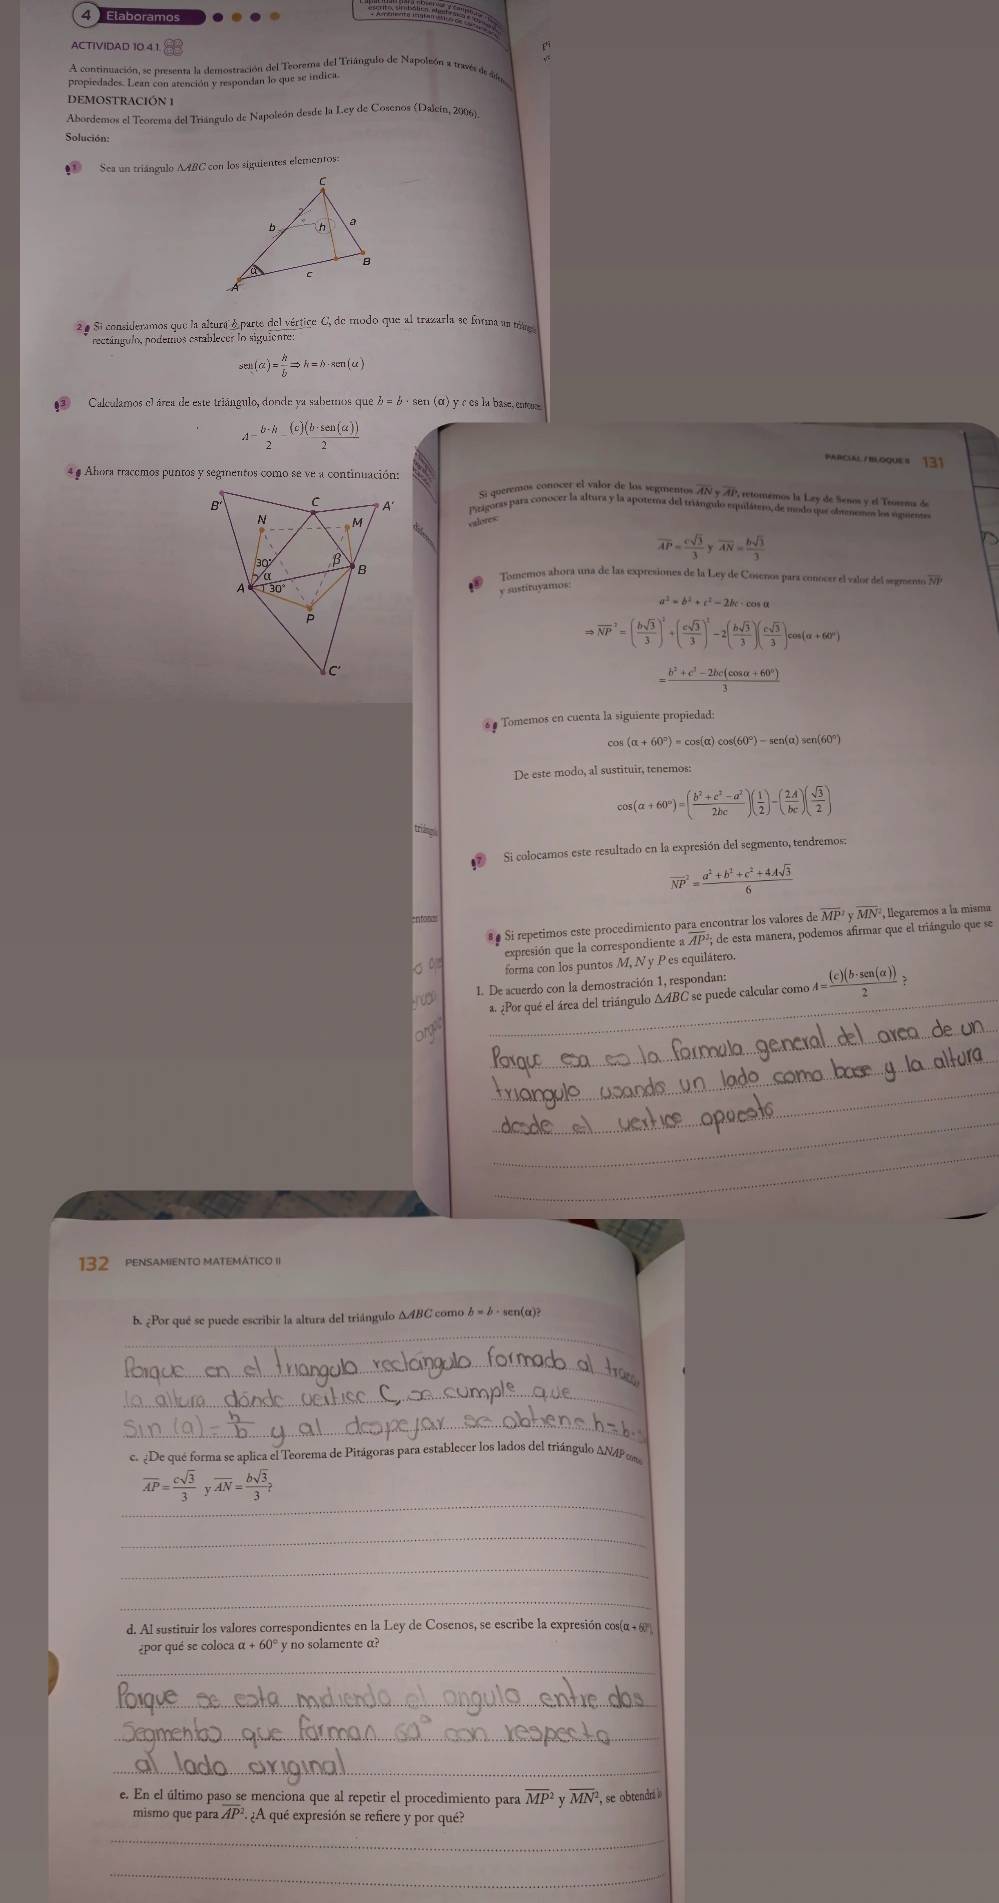 4 Elaboramos
ACTIVIDAD 10.4.1.
A continuación, se presenta la demostración del Teorema del Triángulo de Napoleón a través de
propiedades. Lean con atención y respondan lo que se indica.
DEMOSTRACIÓN 1
Abordemos el Teorema del Triángulo de Napoleón desde la Ley de Cosenos (Dalcín, 2006).
Solución:
1 Sea un triángulo ΔABC con los siguientes elementos:
C
b h a
α B
c
A
2 Si consideramos que la altura parte del vértice C, de modo que al trazarla se forma un
rectángulo, podemos establecer lo siguiente:
sen(α) = h/b ⇒ h = b · sen(α)
3 Calculamos el área de este triángulo, donde ya sabemos que h = b · sen (α) y c es la base,
A = b·h/2 = (c)(b·sen(α))/2
4 Ahora tracemos puntos y segmentos como se ve a continuación:
B' C A'
N M
30° β
α B
A 30°
P
C'
PARCIAL / BLOQUE II 131
Si queremos conocer el valor de los segmentos AN y AP, retomemos la Ley de Senos y el Teorema de
Pitágoras para conocer la altura y la apotema del triángulo equilátero, de modo que obtenemos los siguientes
valores:
AP = c√3/3 y AN = b√3/3
5 Tomemos ahora una de las expresiones de la Ley de Cosenos para conocer el valor del segmento NP
y sustituyamos:
a² = b² + c² − 2bc · cos α
⇒ NP² = (b√3/3)² + (c√3/3)² − 2(b√3/3)(c√3/3)cos(α + 60°)
= b² + c² − 2bc(cosα + 60°)/3
6 Tomemos en cuenta la siguiente propiedad:
cos (α + 60°) = cos(α) cos(60°) − sen(α) sen(60°)
De este modo, al sustituir, tenemos:
cos(α + 60°) = (b² + c² − a²/2bc)(1/2) − (2A/bc)(√3/2)
7 Si colocamos este resultado en la expresión del segmento, tendremos:
NP² = a² + b² + c² + 4A√3/6
8 Si repetimos este procedimiento para encontrar los valores de MP² y MN², llegaremos a la misma
expresión que la correspondiente a AP²; de esta manera, podemos afirmar que el triángulo que se
forma con los puntos M, N y P es equilátero.
1. De acuerdo con la demostración 1, respondan:
a. ¿Por qué el área del triángulo ΔABC se puede calcular como A = (c)(b·sen(α))/2 ?
Porque esa es la formula general del area de un
triangulo usando un lado como base y la altura
desde el vertice opuesto
132 PENSAMIENTO MATEMÁTICO II
b. ¿Por qué se puede escribir la altura del triángulo ΔABC como h = b · sen(α)?
Porque en el triangulo rectángulo formado al
la altura dónde vertise C, se cumple que
Sin (a) = h/b y al despejar se obtiene h=b·
c. ¿De qué forma se aplica el Teorema de Pitágoras para establecer los lados del triángulo ΔNAP como
AP = c√3/3 y AN = b√3/3?
d. Al sustituir los valores correspondientes en la Ley de Cosenos, se escribe la expresión cos(α + 60°),
¿por qué se coloca α + 60° y no solamente α?
Porque se esta midiendo el angulo entre dos
Segmentos que forman 60° con respecto
al lado original
e. En el último paso se menciona que al repetir el procedimiento para MP² y MN², se obtendrá lo
mismo que para AP². ¿A qué expresión se refiere y por qué?